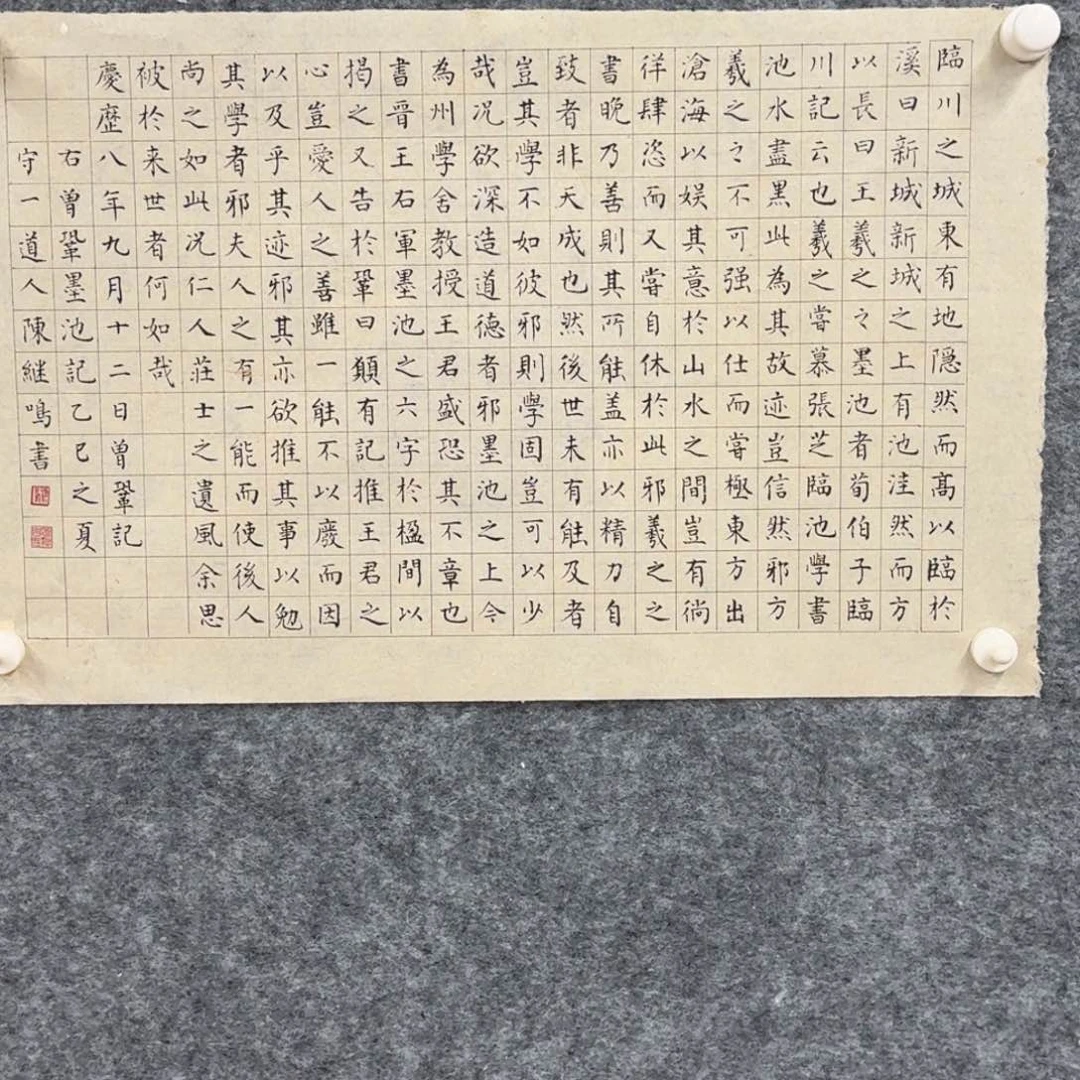 臨川之城東有地隠然而髙以臨於
溪曰新城新城之上有池洼然而方
以長曰王羲之之墨池者荀伯子臨
川記云也羲之嘗慕張芝臨池學書
池水盡黑此為其故迹豈信然邪方
羲之之不可强以仕而嘗極東方出
滄海以娱其意於山水之間豈有徜
徉肆恣而又嘗自休於此邪羲之之
書晚乃善則其所能盖亦以精力自
致者非天成也然後世未有能及者
豈其學不如彼邪則學固豈可以少
哉况欲深造道德者邪墨池之上今
為州學舍教授王君盛恐其不章也
書晉王右軍墨池之六字於楹間以
揭之又告於鞏曰願有記推王君之
心豈愛人之善雖一能不以廢而因
以及乎其迹邪其亦欲推其事以勉
其學者邪夫人之有一能而使後人
尚之如此况仁人莊士之遺風余思
被於来世者何如哉
慶歷八年九月十二日曾鞏記
右曾鞏墨池記乙巳之夏
守一道人陳継鳴書